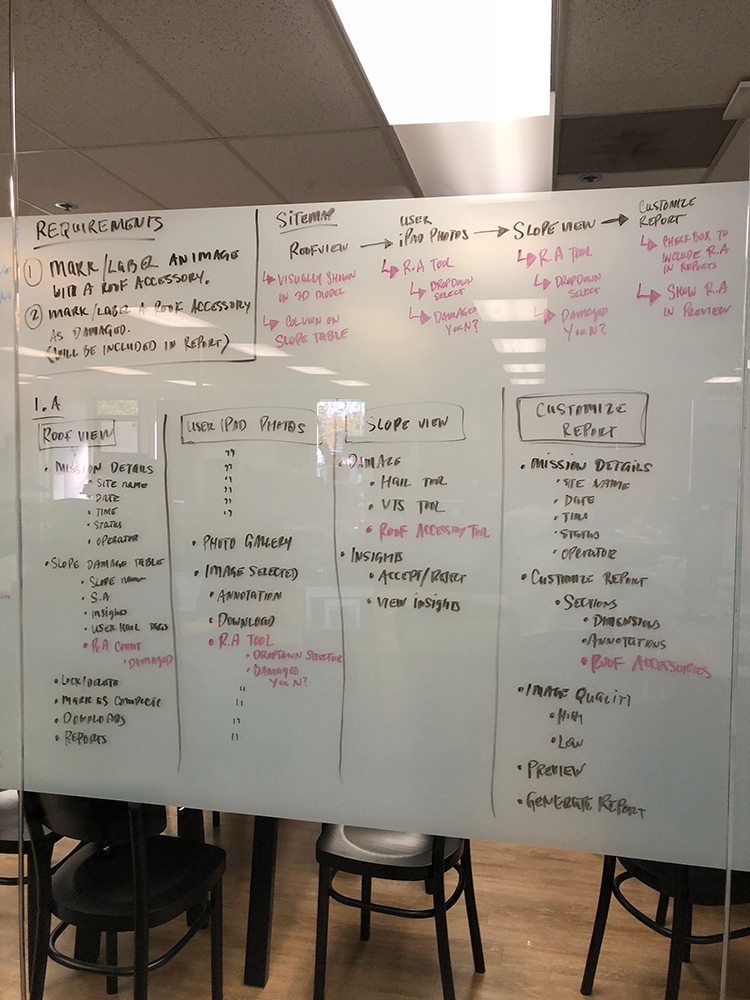 REQUIREMENTS
1 MARK/LABEL AN IMAGE
WITH A ROOF ACCESSORY.
2 MARK/LABEL A ROOF ACCESSORY
AS DAMAGED.
(WILL BE INCLUDED IN REPORT)
SITEMAP
ROOFVIEW
↳ VISUALLY SHOWN
IN 3D MODEL
↳ COLUMN ON
SLOPE TABLE
USER
iPAD PHOTOS
↳ R.A TOOL
↳ DROPDOWN
SELECT
↳ DAMAGED
Y or N?
SLOPE VIEW
↳ R.A TOOL
↳ DROPDOWN
SELECT
↳ DAMAGED
Y or N?
CUSTOMIZE
REPORT
↳ CHECKBOX TO
INCLUDE R.A
IN REPORTS
↳ SHOW R.A
IN PREVIEW
I.A
ROOF VIEW
• MISSION DETAILS
• SITE NAME
• DATE
• TIME
• STATUS
• OPERATOR
• SLOPE DAMAGE TABLE
• SLOPE NAME
• S.A
• Insights
• USER HAIL TAGS
• R.A COUNT
• DAMAGED
• LOCK/DELETE
• MARK AS COMPLETE
• DOWNLOADS
• REPORTS
USER iPAD PHOTOS
"
"
"
"
"
"
• PHOTO GALLERY
• IMAGE SELECTED
• ANNOTATION
• DOWNLOAD
• R.A TOOL
• DROPDOWN SELECTOR
• DAMAGED
Y or N?
"
"
"
"
SLOPE VIEW
• DAMAGE
• HAIL TOOL
• VTS TOOL
• ROOF ACCESSORY TOOL
• INSIGHTS
• ACCEPT/REJECT
• VIEW INSIGHTS
CUSTOMIZE
REPORT
• MISSION DETAILS
• SITE NAME
• DATE
• TIME
• STATUS
• OPERATOR
• CUSTOMIZE REPORT
• SECTIONS
• DIMENSIONS
• ANNOTATIONS
• ROOF ACCESSORIES
• IMAGE QUALITY
• HIGH
• LOW
• PREVIEW
• GENERATE REPORT